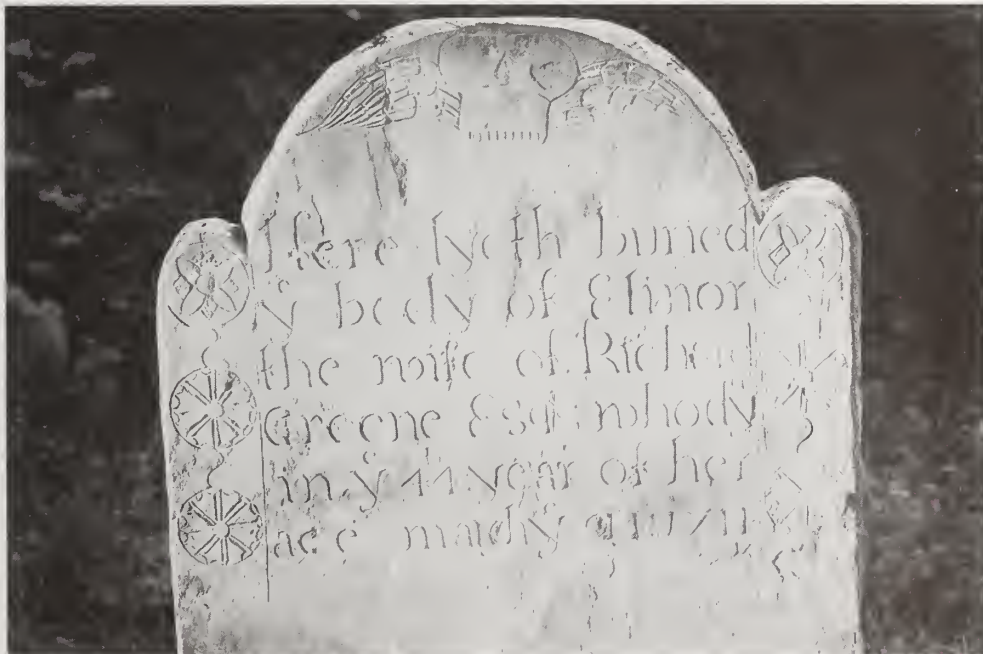 Here lyeth buried
yͤ body of Elinor
the wife of Richard
Greene Esqr who dy
in yͤ year of her
age march yͤ